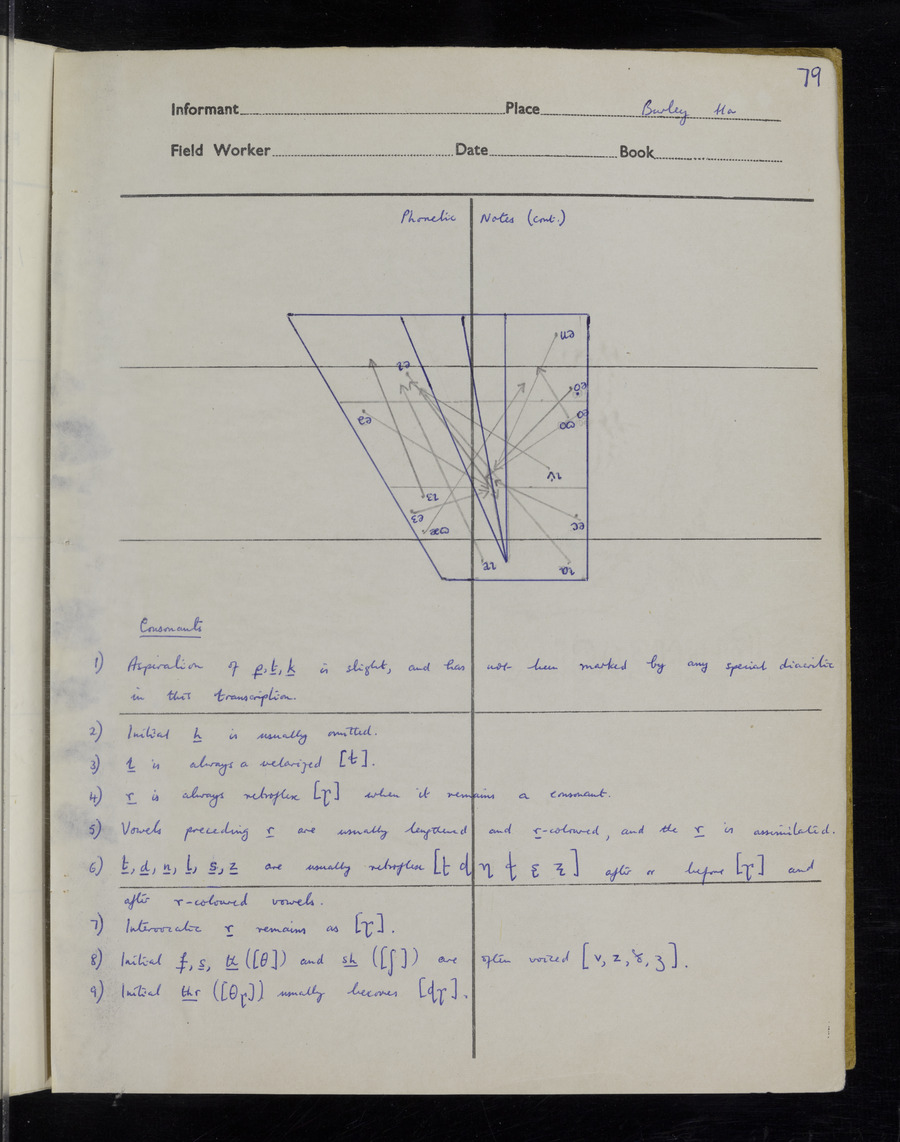 79
Informant Place Burley Ha
Field Worker Date Book
Phonetic Notes (cont.)
Consonants
1) Aspiration of p, t, k is slight, and has not been marked by any special diacritic
in this transcription.
2) Initial h is usually omitted.
3) l is always a velarized [ɫ].
4) r is always retroflex [ɽ] when it remains a consonant.
5) Vowels preceding r are usually lengthened and r-coloured, and the r is assimilated.
6) t, d, n, l, s, z are usually retroflex [ʈ ɖ ɳ ɭ ʂ ʐ] after or before [ɽ] and
after r-coloured vowels.
7) Intervocalic r remains as [ɽ].
8) Initial f, s, th ([θ]) and sh ([ʃ]) are often voiced [v, z, ð, ʒ].
9) Initial thr ([θɽ]) usually becomes [dɽ].